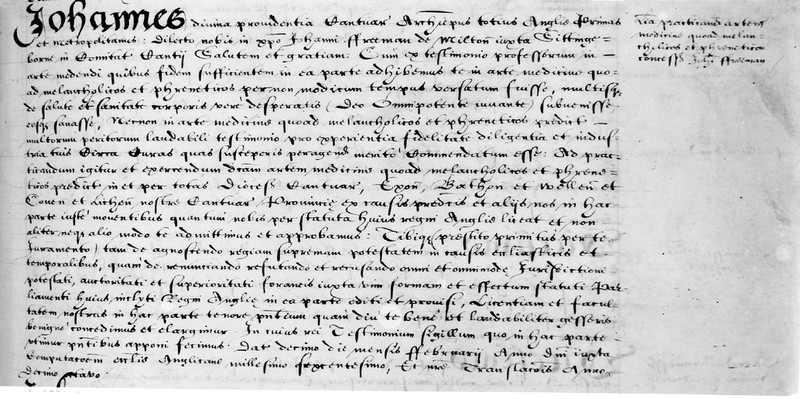 Johannes divina providentia Cantuar Archiepus totius Anglie Primas
et metropolitanus: Dilecto nobis in xpo Johanni ffreeman de Wilton iuxta Sittinge-
borne in Comitat Cantii Salutem et gratiam: Cum ex testimonio professorum in
arte medendi quibus fidem sufficientem in ea parte adhibemus te in arte medicine quo-
ad melancholicos et phreneticos per non modicum tempus versatum fuisse, multisq
de salute et sanitate corporis vere desperatis (Deo Omnipotente iuvante) subvenisse
eosq sanasse, Necnon in arte medicine quoad melancholicos et phreneticos predict
multorum peritorum laudabili testimonio pro experientia fidelitate diligentia et indus-
tria tuis Circa Curas quas susceperis peragend merito Commendatum esse: Ad prac-
ticandum igitur et exercendum dictam artem medicine quoad melancholicos et phrene-
ticos predict in et per totas Dioces Cantuar, Exon, Bathon et Wellen et
Coven et Lichen nostre Cantuar Provincie ex causis predictis et alijs nos in hac
parte iuste moventibus quantum nobis per statuta huius regni Anglie liceat et non
aliter neq alio modo te admittimus et approbamus: Tibiq (prestito primitus per te
Juramento) tam de agnoscendo regiam supremam potestatem in causis eccliasticis et
temporalibus, quam de renunciando refutando et recusando omni et omnimode Jurisdictioni
potestati, auctoritati et superioritati foraneis iuxta vim formam et effectum statuti Par-
liamenti huius inclyti Regni Anglie in ea parte editi et provisi, Licentiam et facul-
tatem nostras in hac parte tenore pntium quam diu te bene et laudabiliter gesseris
benigne concedimus et elargimur In cuius rei Testimonium sigillum quo in hac parte
utimur pntibus apponi fecimus Dat decimo die mensis ffebruarij Anno Dni iuxta
Computacoem ecclie Anglicane millesimo sexcentesimo, Et nre Translacois Anno
Decimo octavo
practicand artem
medicine quoad melan-
cholicos et phreneticos
concess Johi ffreeman